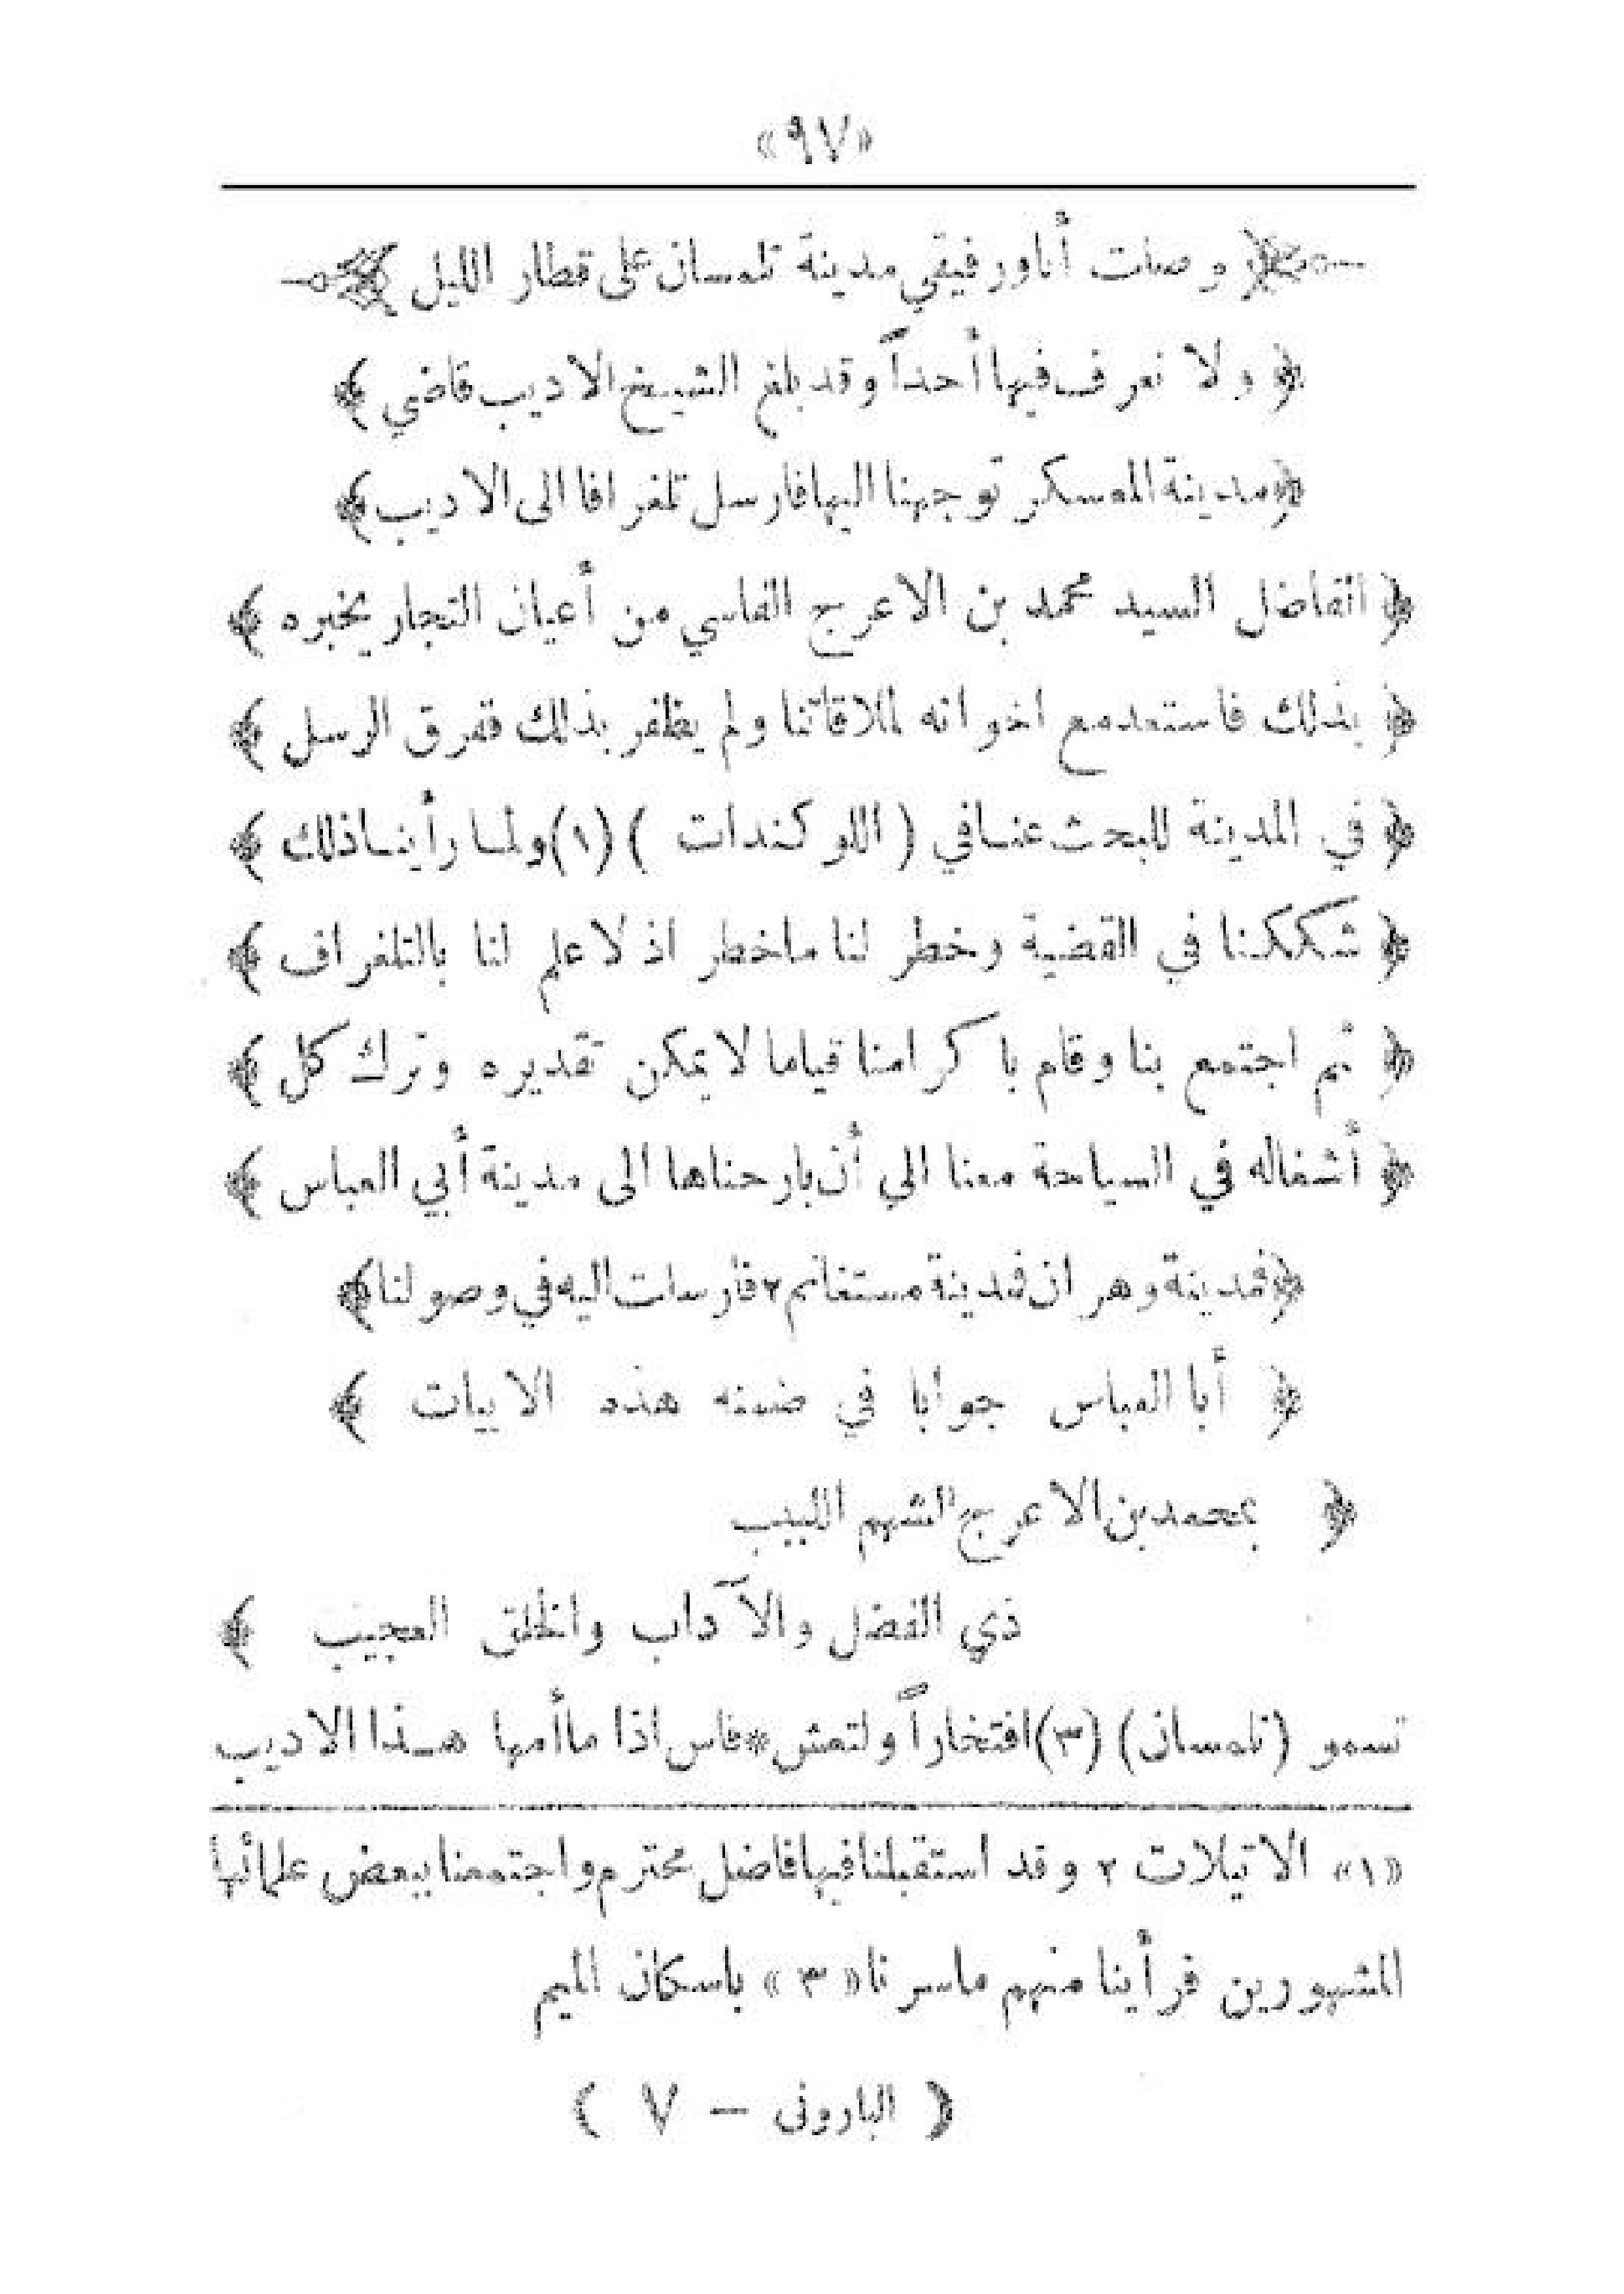 «٩٧»
﴿ وصلت أنا ورفيقي مدينة تلمسان على قطار الليل ﴾
﴿ ولا نعرف فيها أحداً وقد بلغ الشيخ الاديب قاضي ﴾
﴿ مدينة المعسكر توجهنا اليها فارسل تلغرافا الى الاديب ﴾
﴿ الفاضل السيد محمد بن الاعرج الفاسي من أعيان التجار يخبره ﴾
﴿ بذلك فاستعد مع اخوانه لملاقاتنا ولم يظفر بذلك ففرق الرسل ﴾
﴿ في المدينة للبحث عنا في ( اللوكندات ) (١) ولما رأينا ذلك ﴾
﴿ شككنا في القضية وخطر لنا ماخطر اذ لا علم لنا بالتلغراف ﴾
﴿ ثم اجتمع بنا وقام باكرامنا قياما لا يمكن تقديره وترك كل ﴾
﴿ أشغاله في السياحة معنا الي أن بارحناها الى مدينة أبي العباس ﴾
﴿ فمدينة وهران فمدينة مستغانم ٢ فارسلت اليه في وصولنا ﴾
﴿ أبا العباس جوابا في ضمنه هذه الابيات ﴾
﴿ بمحمد بن الاعرج الشهم اللبيب
ذي الفضل والآداب والخلق العجيب ﴾
تسمو (تلمسان) (٣) افتخاراً ولتعش * فاس اذا ما أمها هذا الاديب
«١» الاتيلات ٢ وقد استقبلنا فيها فاضل محترم واجتمعنا ببعض علمائها
المشهورين فرأينا منهم ماسرنا «٣» باسكان الميم
( الباروني — ٧ )